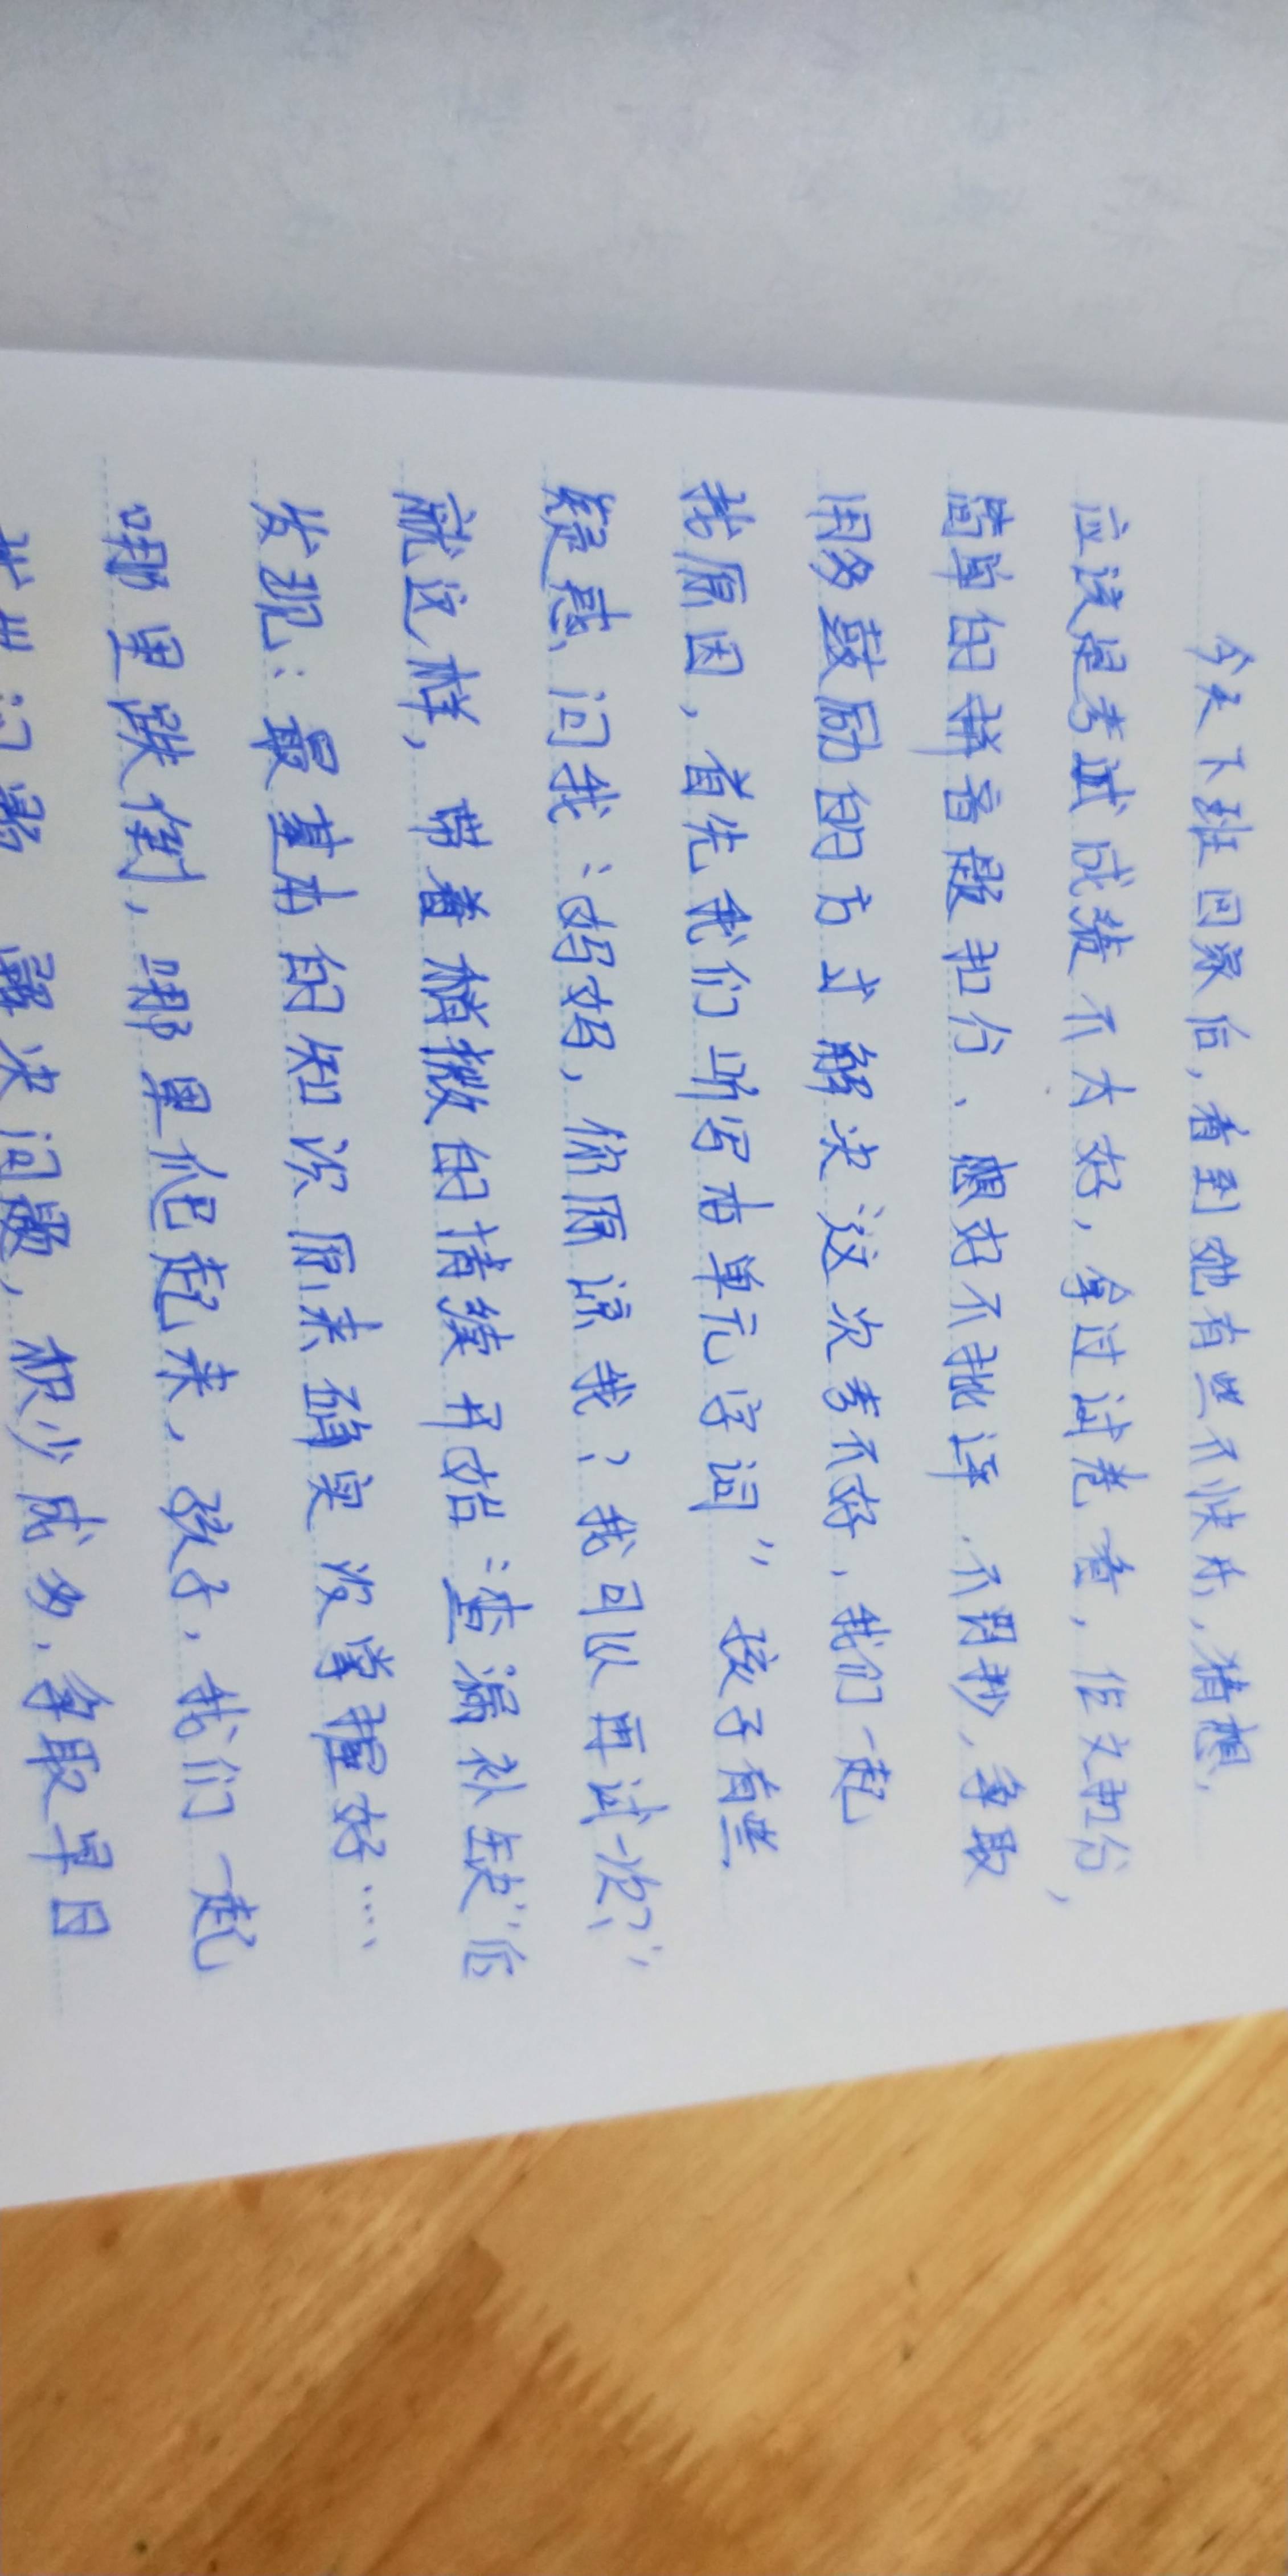 今天下班回家后，看到她有些不快乐，猜想，
应该是考试成绩不太好，拿过试卷看，作文扣分，
简单的拼音题扣分、想好不批评、不罚抄、争取
用多鼓励的方式解决这次考不好、我们一起
找原因，首先我们听写本单元字词” 孩子有些
疑惑问我：“妈妈，你原谅我？我可以再试一次？”
就这样，带着稍微的情绪开始“查漏补缺”后
发现：最基本的知识原来确实没掌握好……
哪里跌倒，哪里爬起来，孩子，我们一起
解决问题，积少成多，争取早日